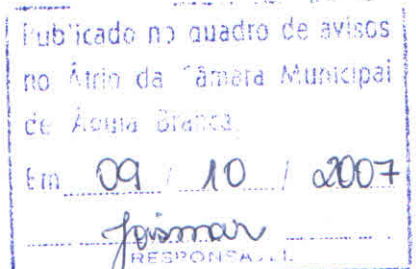 Publicado no quadro de avisos
no Átrio da Câmara Municipal
de Águia Branca.
Em 09 / 10 / 2007
Joismar
RESPONSÁVEL